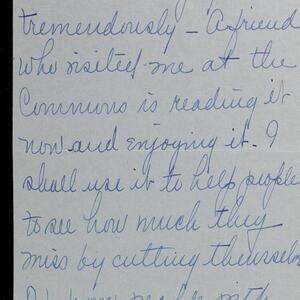 tremendously - A friend
who visited me at the
Commons is reading it
now and enjoying it. I
shall use it to help people
to see how much they
miss by cutting themselves